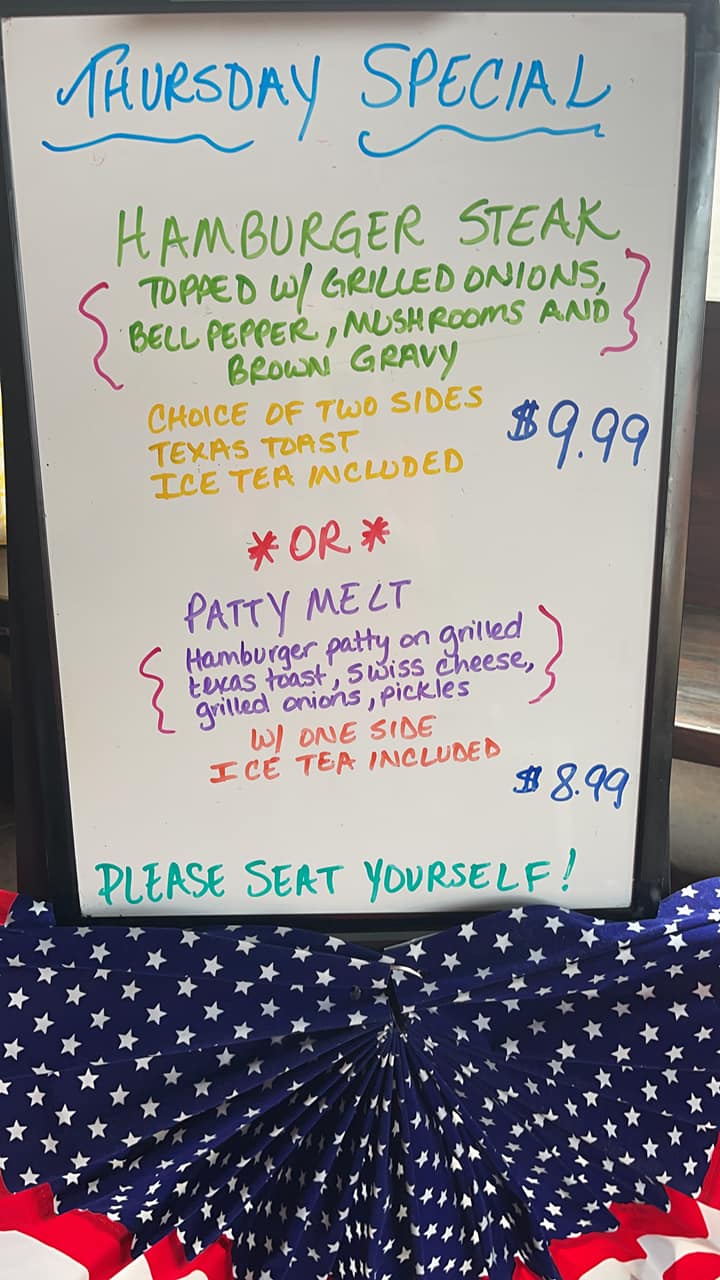 THURSDAY SPECIAL
HAMBURGER STEAK
TOPPED W/ GRILLED ONIONS,
BELL PEPPER, MUSHROOMS AND
BROWN GRAVY
CHOICE OF TWO SIDES
TEXAS TOAST
ICE TEA INCLUDED
$9.99
*OR*
PATTY MELT
Hamburger patty on grilled
texas toast, swiss cheese,
grilled onions, pickles
W/ ONE SIDE
ICE TEA INCLUDED
$8.99
PLEASE SEAT YOURSELF!